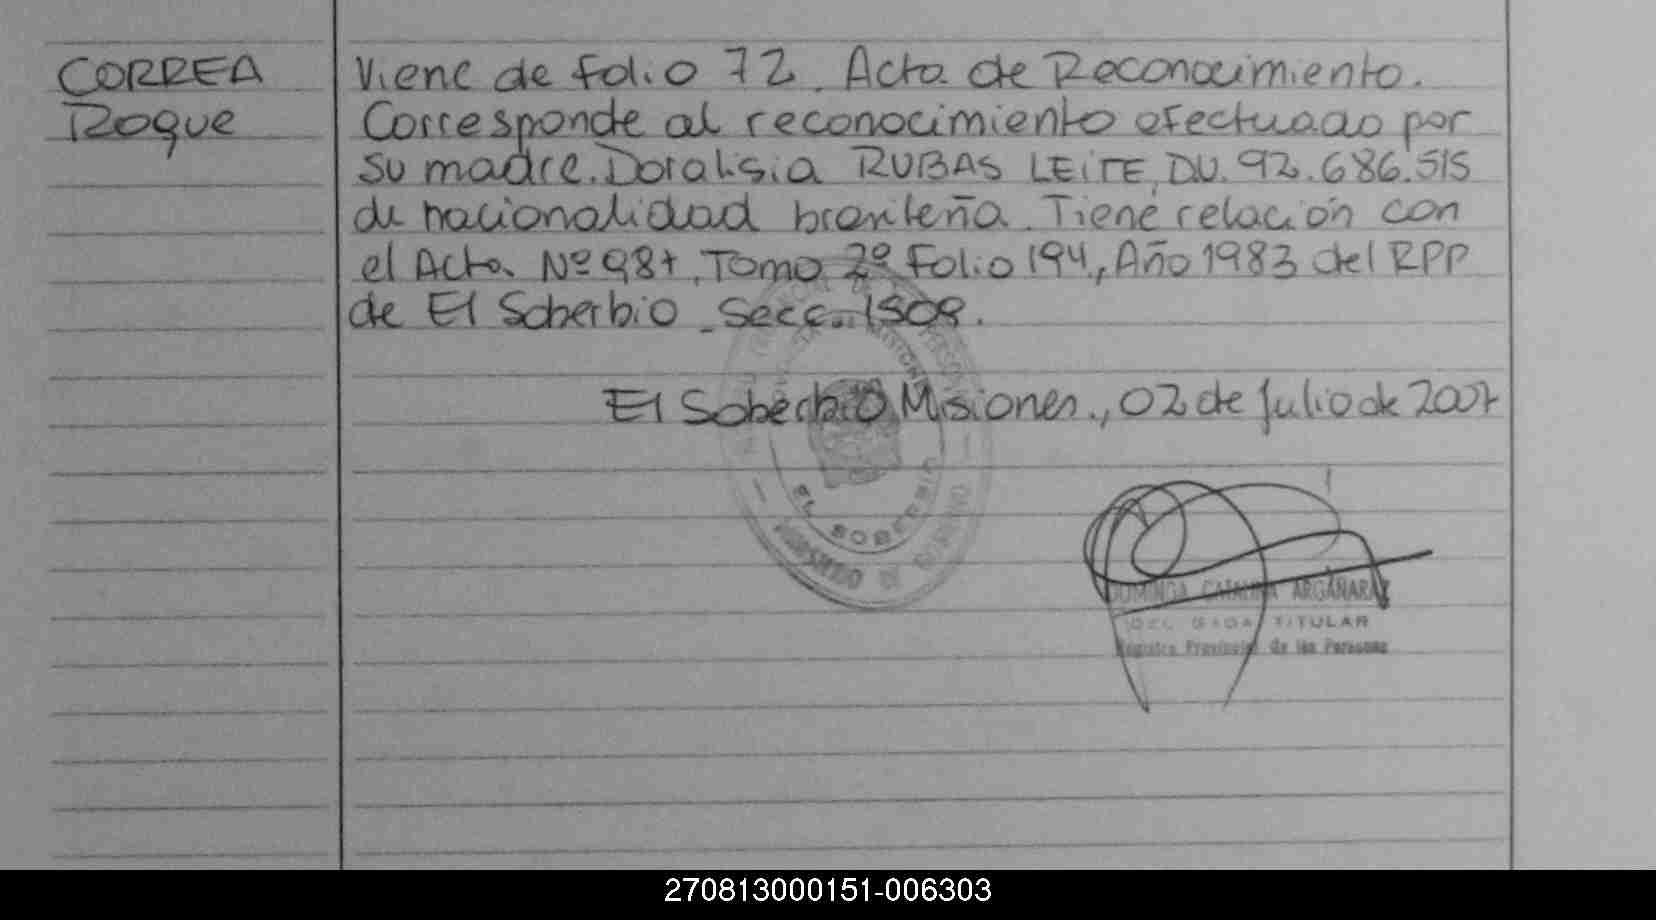 CORREA
Roque
Viene de folio 72. Acta de Reconocimiento.
Corresponde al reconocimiento efectuado por
su madre. Doralisia RUBAS LEITE, DU. 92.686.515
de nacionalidad brasileña. Tiene relación con
el Acta Nº 987, Tomo 2º Folio 194, Año 1983 del RPP
de El Soberbio - Secc. 1508.
El Soberbio Misiones., 02 de Julio de 2007
EL SOBERBIO
DOMINGA CATALINA ARGAÑARAZ
DELEGADA TITULAR
Registro Provincial de las Personas
270813000151-006303